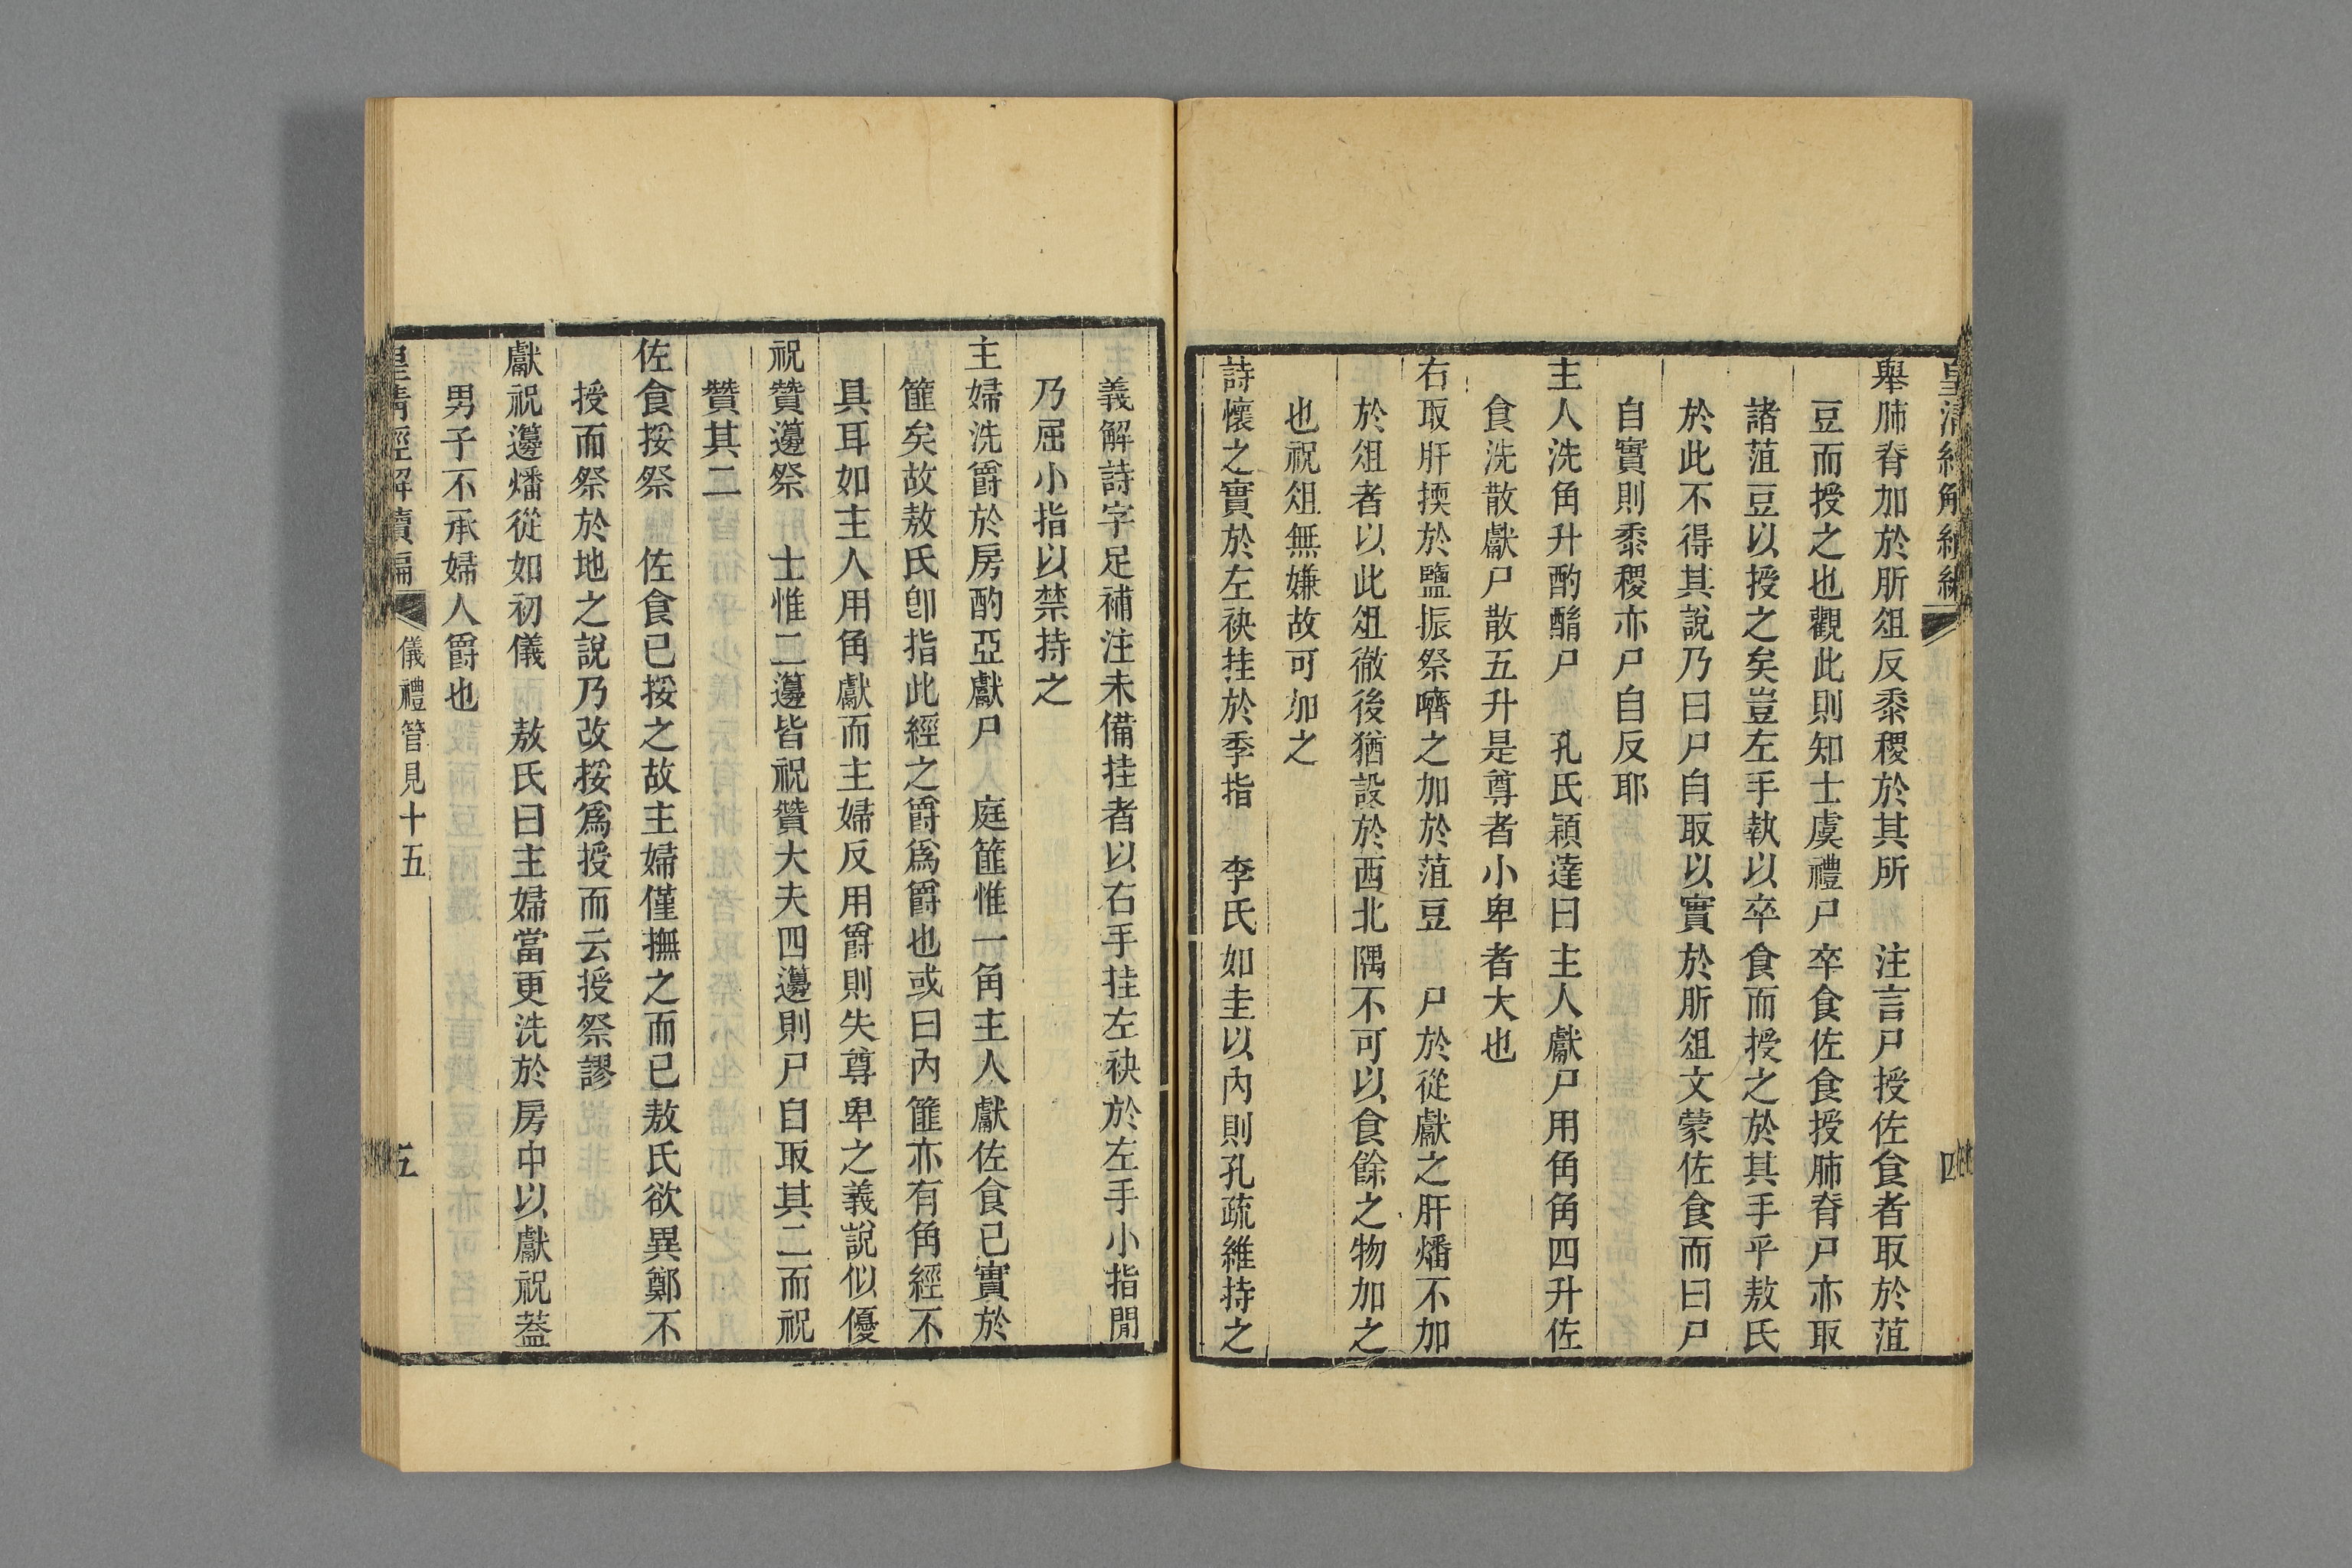 皇清經解續編
四
舉肺脊加於肵俎反黍稷於其所　注言尸授佐食者取於菹
豆而授之也觀此則知士虞禮尸卒食佐食授肺脊尸亦取
諸菹豆以授之矣豈左手執以卒食而授之於其手乎敖氏
於此不得其說乃曰尸自取以實於肵俎文蒙佐食而曰尸
自實則黍稷亦尸自反耶
主人洗角升酌酳尸　孔氏穎達曰主人獻尸用角角四升佐
食洗散獻尸散五升是尊者小卑者大也
右取肝擩於鹽振祭嚌之加於菹豆　尸於從獻之肝燔不加
於俎者以此俎徹後猶設於西北隅不可以食餘之物加之
也祝俎無嫌故可加之
詩懷之實於左袂挂於季指　李氏如圭以內則孔疏維持之
義解詩字足補注未備挂者以右手挂左袂於左手小指閒
乃屈小指以禁持之
主婦洗爵於房酌亞獻尸　庭篚惟一角主人獻佐食已實於
篚矣故敖氏卽指此經之爵爲爵也或曰內篚亦有角經不
具耳如主人用角獻而主婦反用爵則失尊卑之義說似優
祝贊籩祭　士惟二籩皆祝贊大夫四籩則尸自取其二而祝
贊其二
佐食挼祭　佐食已挼之故主婦僅撫之而已敖氏欲異鄭不
授而祭於地之說乃改挼爲授而云授祭謬
獻祝籩燔從如初儀　敖氏曰主婦當更洗於房中以獻祝蓋
男子不承婦人爵也
皇清經解續編
儀禮管見十五
五